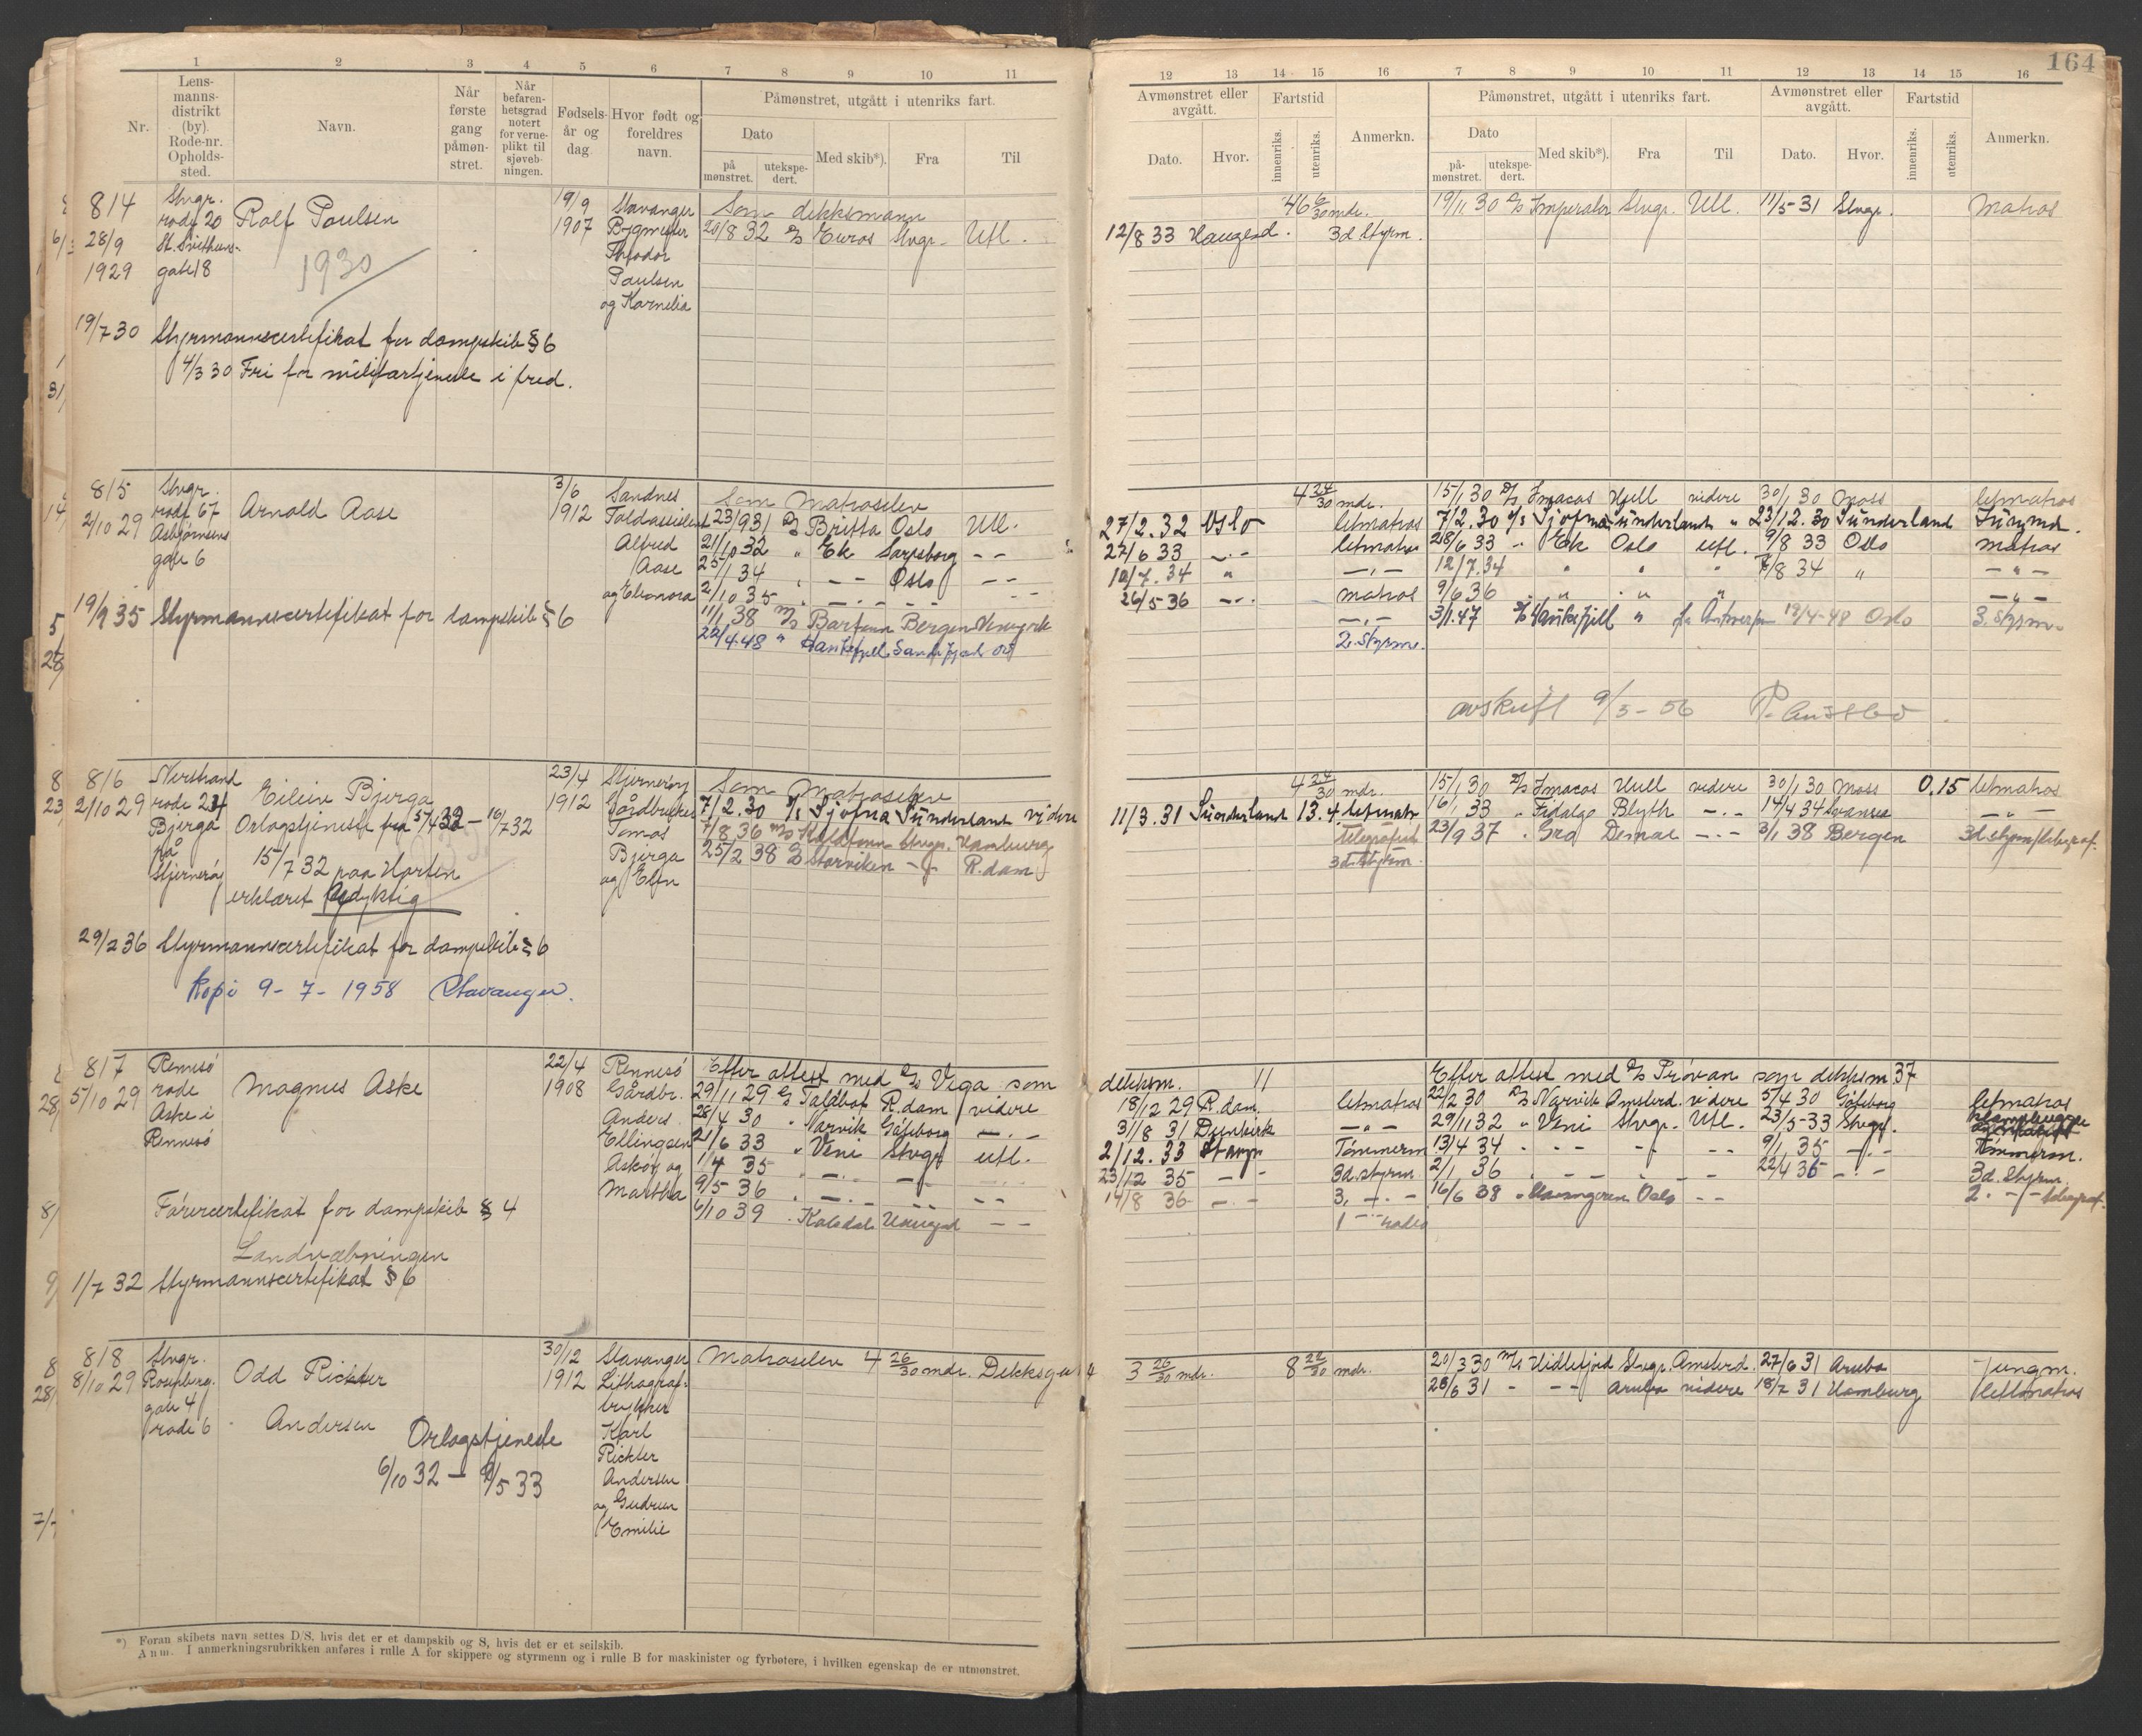 164
1 2 3 4 5 6 7 8 9 10 11
12 13 14 15 16 7 8 9 10 11 12 13 14 15 16
Nr.
Lens-
manns-
distrikt
(by).
Rode-nr.
Opholds-
sted.
Navn.
Når
første
gang
påmøn-
stret.
Når
befaren-
hetsgrad
notert
for verne-
plikt til
sjøveb-
ningen.
Fødsels-
år og
dag
Hvor født og
foreldres
navn.
Påmønstret, utgått i utenriks fart.
Dato
på
mønstret.
utekspe-
dert.
Med skib*).
Fra
Til
Avmønstret eller
avgått.
Dato.
Hvor.
Fartstid
innenriks.
utenriks.
Anmerkn.
Påmønstret, utgått i utenriks fart.
Dato
på-
mønstret.
utekspe-
dert.
Med skib*).
Fra
Til
Avmønstret eller
avgått.
Dato.
Hvor.
Fartstid
innenriks.
utenriks.
Anmerkn.
814
28/9
1929
Stvgr.
rode 20
St. Svithuns-
gate 18
Rolf Paulsen
1930
19/9
1907
Stavanger
Bygmester
Theodor
Paulsen
og Kornelia
Som dekksmann
20/8 32 D/S Euros Stvgr. Utl.
46 6/30 mdr.
12/8 33 Haugesd. 3d Styrm.
19/11 30 D/S Imperator Stvgr. Utl. 11/5-31 Stvgr. Matros
19/7 30 Styrmannscertifikat for dampskib § 6
4/3 30 Fri for militærtjeneste i fred.
815
2/10 29
Stvgr.
rode 67
Asbjørnsens
gate 6
Arnold Aase
3/6
1912
Sandnes
Toldassistent
Alfred
Aase
og Eleonora
Som Matroselev
23/9 31 D/S Britta Oslo Utl.
21/10 32 " Ek Sarpsborg - -
25/1 34 " - - Oslo - -
2/10 35 " - - - - - -
11/1 38 M/S Barfonn Bergen Newyork
22/4.48 " Haukefjell Sandefjord
4 24/30 mdr.
27/2.32 Oslo letmatros
22/6 33 - " - letmatros
10/7.34 " - " -
26/5-36 - " - matros
- " -
2. Styrm.
15/1 30 D/S Imacos Hull videre 30/1 30 Moss letmatros
7/2.30 D/S Sjofna Sünderland " 23/12.30 Sünderland Jüngmd.
28/6 33 " Ek Oslo utl. 9/8 33 Oslo matros
12/7.34 " " " 7/8 34 " - " -
9/6 36 " " " - " -
3/1.47 Haukefjell " fra Antwerpen 19/4-48 Oslo 3. Styrm.
19/9 35 Styrmannscertifikat for dampskib § 6
avskrift 9/5-56
816
2/10 29
Nerstrand
rode 24
Bjerga
på
Stjernerøy
Eilein Bjerga
Orlogstjeneste fra 5/4 32 - 16/7 32
15/7 32 paa Horten
erklæret udyktig
23/4
1912
Stjernerøy
Gårdbruker
Tomas
Bjerga
og Elen
Som Matroselev
7/2.30 D/S Sjofna Sünderland videre
7/8 36 M/S Stvgr. Hamburg
25/2 38 D/S Storviken - " - R.dam
4 24/30 mdr.
11/3.31 Sünderland 13.4 letmatr.
telegrafist
3d. Styrm.
15/1 30 D/S Imacos Hull videre 30/1 30 Moss 0.15 letmatros
16/1 33 " Fidalgo Blyth - " - 14/4 34 Swansea - " -
23/9 37 " Gro - " - 3/1 38 Bergen 3d styrm/telegraf.
29/2 36 Styrmannscertifikat for dampskib § 6
Kopi 9-7-1958 Stavanger.
817
5/10 29
Rennesø
rode
Aske i
Rennesø
Magnus Aske
22/4
1908
Rennesø
Gårdbr.
Anders
Ellingsen
Askøy og
Martha
Efter attest med D/S Vega som
dekksm. 11
29/11 29 D/S Taldbot R.dam videre
28/4 30 " Narvik Gøteborg - " -
21/6 33 " Veni Stvgr utl.
1/4 35 " - " - - " - - " -
9/5 36 " - " - - - - -
6/10 39 " Kolsdal Haugesd - -
18/12 29 R.dam. letmatros
3/8 31 Dunkirk - " -
2/12.33 Stavgr Tømmerm
23/12 35 - " - 3d. styrm
14/8 36 - " - 3. - " -
Efter attest med D/S Prøvan som dekksm 37
22/2 30 D/S Narvik Amsterd. videre 5/4 30 Gøteborg letmatros
29/11 32 " Veni Stvgr. Utl. 23/5-33 Stvgr.
13/4 34 " - - - " - - - 9/1 35 - " - Tømmerm.
2/1 36 " - - - - - 22/4 36 - " - 3d. Styrm.
16/6 38 " Oslo - - 2. - " - telegraf.
Førercertifikat for dampskib § 4
Landvæbningen
1/7 32 Styrmannscertifikat § 6
818
8/10 29
Stvgr.
Rosenberg-
gate 41
rode 6
Odd Rickter
Andersen
Orlogstjeneste
6/10 32 - 9/5 33
30/12
1912
Stavanger
Lithograf-
trykker
Karl
Rickter
Andersen
og Gudrun
Emilie
Matroselev 4 26/30 mdr. Dekksgut 4
3 26/30 mdr. 8 22/30 mdr.
20/3 30 M/S Hidlefjord Stvgr. Amsterd. 27/6 31 Aruba Jungm.
28/6 31 " - - Aruba videre 18/7 31 Hamburg Lettmatros
*) Foran skibets navn settes D/S, hvis det er et dampskib og S, hvis det er et seilskib.
Anm. I anmerkningsrubrikken anføres i rulle A for skippere og styrmenn og i rulle B for maskinister og fyrbøtere, i hvilken egenskap de er utmønstret.